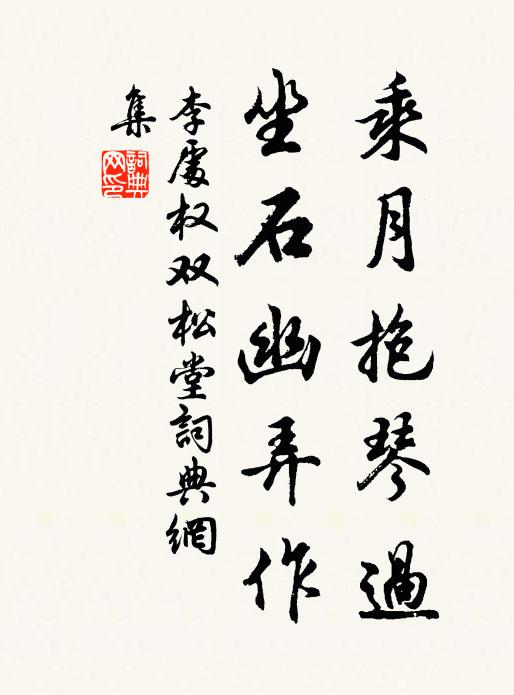 乘月抱琴過
坐石幽弄作
李處权双松堂詞典網
集
詞典
网印